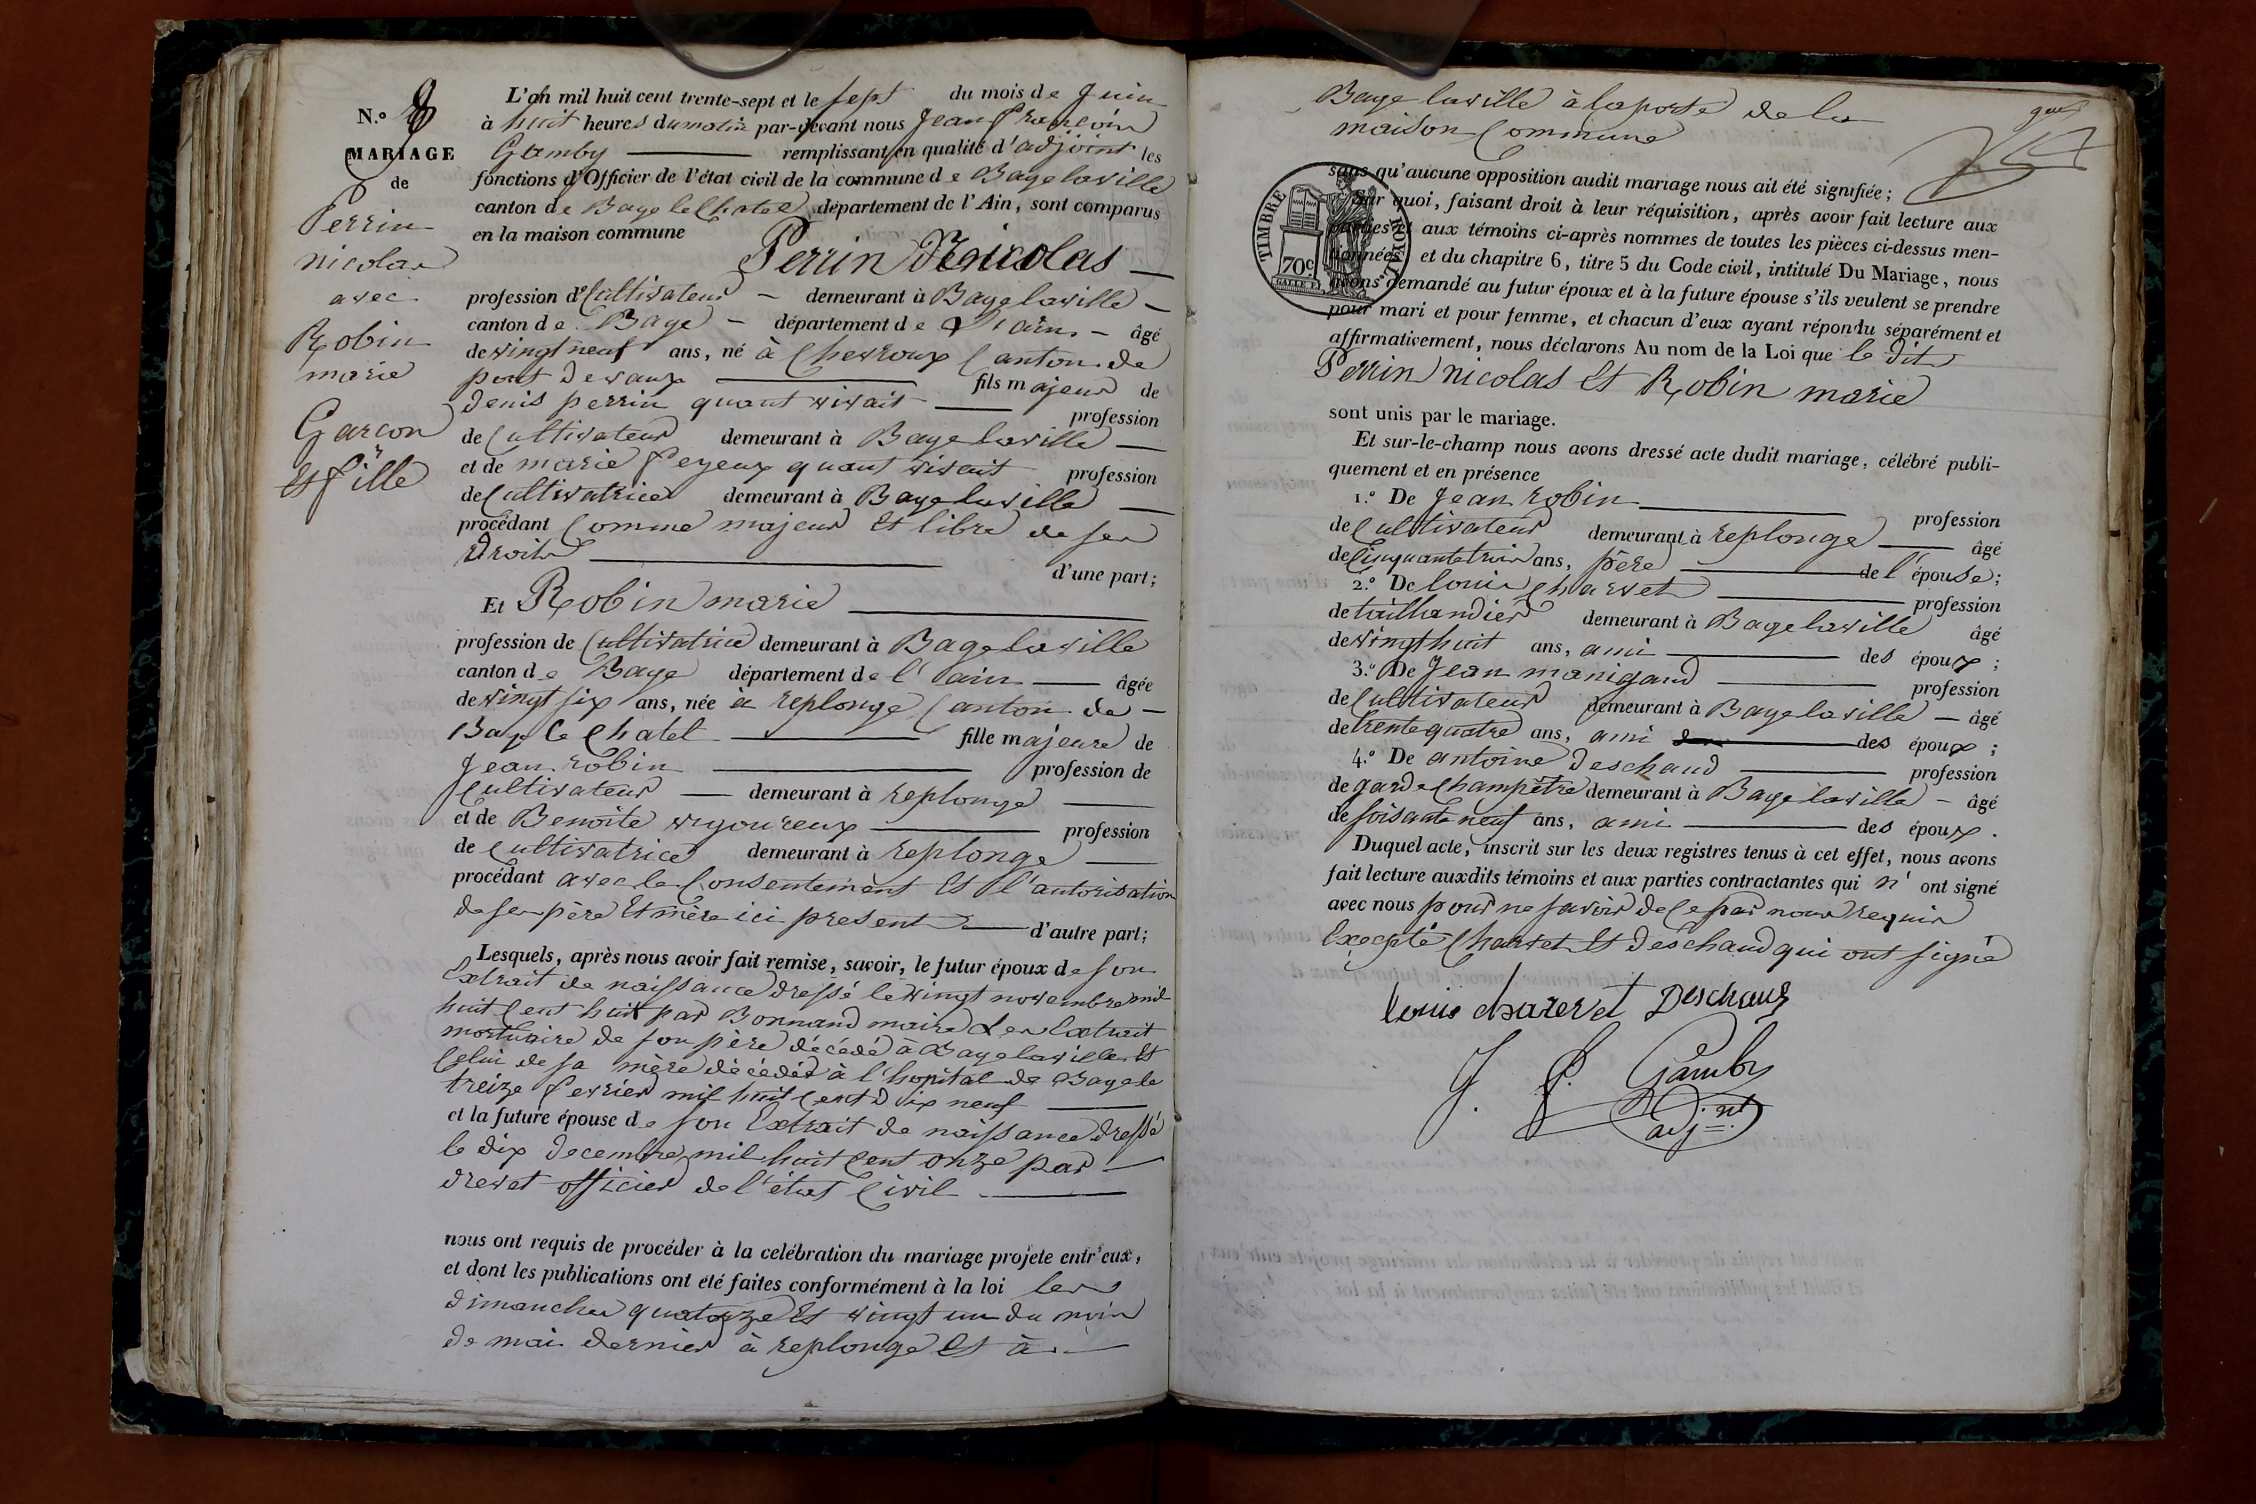 N.o 8
MARIAGE
de
Perrin
nicolas
avec
Robin
marie
Garçon
et fille
L'an mil huit cent trente-sept et le sept du mois de Juin
à huit heures du matin par-devant nous Jean francois
Gamby remplissant en qualité d'adjoint les
fonctions d'Officier de l'état civil de la commune de Bage laville
canton de Bage le Chatel département de l'Ain, sont comparus
en la maison commune
Perrin Nicolas
profession de Cultivateur demeurant à Bage laville
canton de Bage département de l'ain âgé
de vingt neuf ans, né à Chevroux Canton de
pont de vaux fils majeur de
denis perrin quant vivait profession
de Cultivateur demeurant à Bage laville
et de marie feyeux quant vivait profession
de Cultivatrice demeurant à Bage laville
procédant Comme majeur et libre de ses
droits d'une part;
Et Robin marie
profession de Cultivatrice demeurant à Bage laville
canton de Bage département de l'ain âgée
de vingt six ans, née à replonge Canton de
Bage le Chatel fille majeure de
Jean robin profession de
Cultivateur demeurant à replonge
et de Benoite vigoureux profession
de Cultivatrice demeurant à replonge
procédant avec le Consentement et l'autorisation
de ses père et mère ici present d'autre part;
Lesquels, après nous avoir fait remise, savoir, le futur époux de son
Extrait de naissance dressé le vingt novembre mil
huit Cent huit par Bonnand maire Extrait
mortuaire de son père décédé à Bage laville et
Celui de sa mère décédée à l'hopital de Bage le
treize fevrier mil huit Cent dix neuf
et la future épouse de son Extrait de naissance dressé
le dix decembre mil huit Cent onze par
drevet officier de l'état Civil
nous ont requis de procéder à la celébration du mariage projete entr'eux,
et dont les publications ont été faites conformément à la loi les
dimanches quatorze et vingt un du mois
de mai dernier à replonge et à
Bage laville à la porte de la
maison Commune
TIMBRE ROYAL
70c
sans qu'aucune opposition audit mariage nous ait été signifiée;
Sur quoi, faisant droit à leur réquisition, après avoir fait lecture aux
parties et aux témoins ci-après nommes de toutes les pièces ci-dessus men-
tionnées, et du chapitre 6, titre 5 du Code civil, intitulé Du Mariage, nous
avons demandé au futur époux et à la future épouse s'ils veulent se prendre
pour mari et pour femme, et chacun d'eux ayant répondu séparément et
affirmativement, nous déclarons Au nom de la Loi que le dit
Perrin nicolas et Robin marie
sont unis par le mariage.
Et sur-le-champ nous avons dressé acte dudit mariage, célébré publi-
quement et en présence
1.o De Jean robin profession
de Cultivateur demeurant à replonge âgé
de Cinquante trois ans, père de l'épouse;
2.o De louis Charvet profession
de taillandier demeurant à Bage laville âgé
de vingt huit ans, ami des époux;
3.o De Jean manigand profession
de Cultivateur demeurant à Bage laville âgé
de trente quatre ans, ami des époux;
4.o De antoine deschaud profession
de garde Champêtre demeurant à Bage laville âgé
de soisante neuf ans, ami des époux.
Duquel acte, inscrit sur les deux registres tenus à cet effet, nous avons
fait lecture auxdits témoins et aux parties contractantes qui n'ont signé
avec nous pour ne savoir de Ce par nous requis
Excepté Charvet et deschaud qui ont signé
louis charervet Deschaud
J. F. Gamby
adj.nt